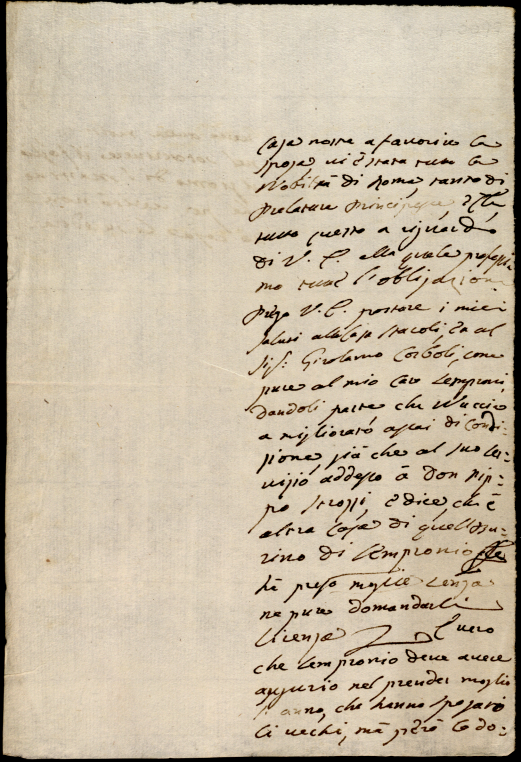 Casa nostra a favorire la
sposa vi è stata tutta la
Nobiltà di Roma tanto di
Prelature Principesse
tutto questo a riguardo
di V. E. alla quale professia
mo tutte l'obligazioni
Prego V. E. portare i miei
saluti alla Casa Staccoli, Ea al
Sig: Girolamo Corboli, come
pure al mio Caro Sempronij,
dandoli parte che Nuccio
a migliorato assai di Condi:
zione, già che al suo ser:
vizio, addesso à Don Pip:
po Strozzi, è dice, che è
altra Casa di quell
rino di Sempronio
hà preso moglie senza
ne pure domandarli
licenza È vero
che Sempronio deve avere
augurio nel prender moglie
anno, che hanno sposato
li vechi, mà però le do: